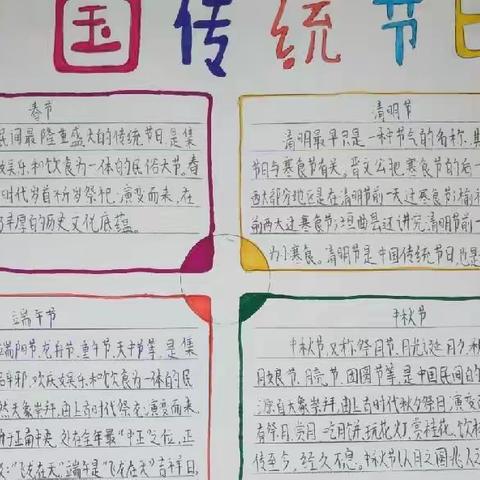 国传统节日
春节
民间最隆重盛大的传统节日,是集
娱乐和饮食为一体的民俗大节。春
时代岁首祈岁祭祀演变而来,在
丰厚的历史文化底蕴。
清明节
清明最早只是一种节气的名称,其
节日与寒食节有关。晋文公把寒食节的后一
西大部分地区是在清明节前一天过寒食节;榆社
前两天过寒食节;垣曲县还讲究清明节前一
为小寒食。清明节是中国传统节日,也是
端午节
端阳节,龙舟节,重午节,天中节等,是集
辟邪,欢庆娱乐和饮食为一体的民
然天象崇拜,由上古时代祭龙演变而来。
于正南中央,处在全年最“中正”之位,正
:“飞龙在天”。端午是“飞龙在天”吉祥日,
中秋节
中秋节,又称祭月节、月光诞、月夕、秋
月娘节、月亮节、团圆节等,是中国民间的
源自天象崇拜,由上古时代秋夕祭月演变而
有祭月、赏月、吃月饼、玩花灯、赏桂花、饮桂
传至今,经久不息。中秋节以月之圆兆人之